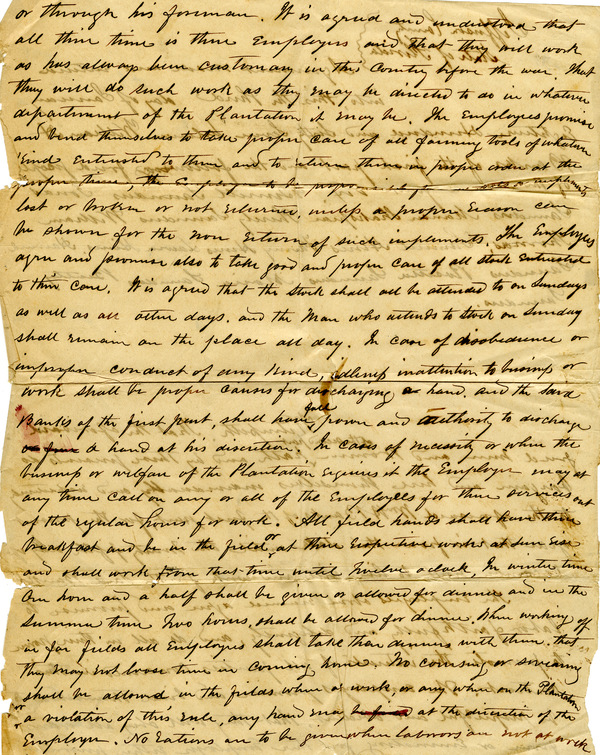 or through his foreman. It is agreed and understood that
all thire time is thire Employers and that they will work
as has always been customary in this Country before the war. That
they will do such work as they may be directed to do in whatever
department of the Plantation it may be. The Employees promise
and bind themselves to take proper care of all farming tools of whatever
Kind Entrusted to them and to return them in proper order at the
proper time, the Employees to be responsible for implements
lost or broken or not returned, unless a proper reason can
be shown for the non return of such implements. The Employees
agree and promise also to take good and proper care of all stock Entrusted
to thire Care. It is agreed that the stock shall all be attended to on Sundays
as well as all other days. and the Man who attends to stock on Sunday
shall remain on the place all day. In case of disobedience or
improper conduct of any Kind, idleness inattention to business or
work shall be proper causes for discharging a hand. and the said
Banks of the first part, shall have full power and authority to discharge
a hand at his discretion. In cases of necessity or when the
business or welfare of the Plantation requires it the Employer may at
any time call on any or all of the Employees for thire services out
of the regular hours for work. All field hands shall have thire
breakfast and be in the field or at thire respective works at sun rise
and shall work from that time until Twelve oclock, In winter time
One hour and a half shall be given or allowed for dinner and in the
Summer time Two hours, shall be allowed for dinner. When working off
in far fields all Employees shall take thire dinners with them, that
they may not loose time in coming home. No cursing or swearing
shall be allowed in the fields when at work or any where on the Plantation
or a violation of this rule, any hand may be fined at the discretion of the
Employer. No Rations are to be given when laborers are not at work